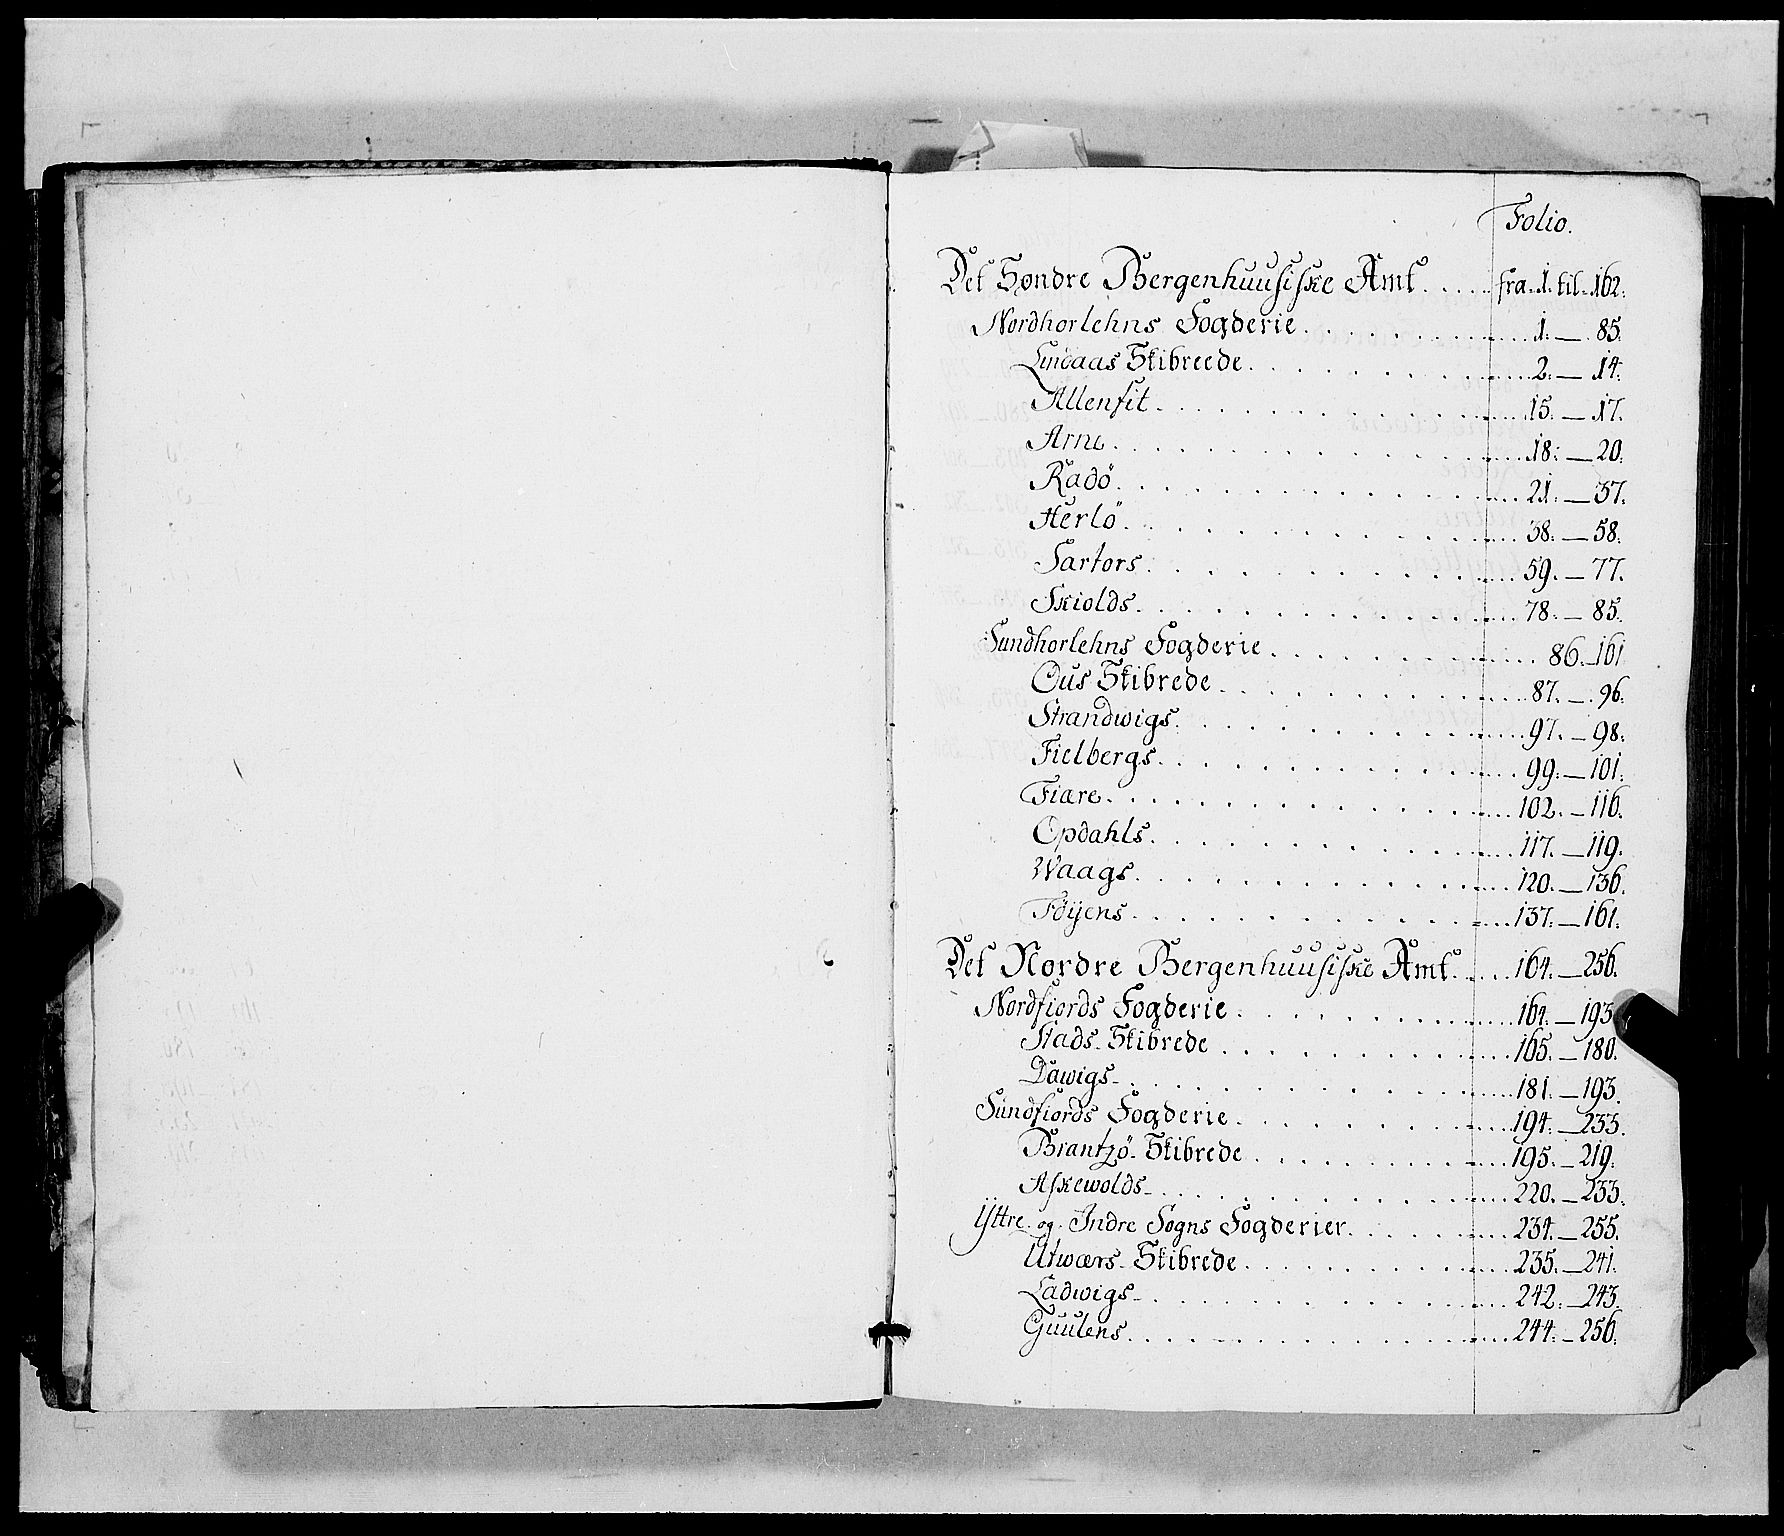 Folio.
Det Søndre Bergenhuusiske Amt ..... fra. 1. til. 162.
Nordhorlehns Fogderie ..... 1. — 85.
Lindaas Skibreede ..... 2. — 14.
Allenfit ..... 15. — 17.
Arne ..... 18. — 20.
Radö ..... 21. — 37.
Herlö ..... 38. — 58.
Sartors ..... 59. — 77.
Skiolds ..... 78. — 85.
Sundhorlehns Fogderie ..... 86. — 161
Ous Skibrede ..... 87. — 96.
Strandwigs ..... 97. — 98.
Fielbergs ..... 99. — 101.
Fiære ..... 102. — 116.
Opdahls ..... 117. — 119.
Waags ..... 120. — 136.
Föyens ..... 137. — 161.
Det Nordre Bergenhuusiske Amt ..... 164. — 256.
Nordfiords Fogderie ..... 164. — 193
Stads Skibrede ..... 165. — 180.
Dawigs ..... 181. — 193.
Sundfiords Fogderie ..... 194. — 233.
Brantzö Skibrede ..... 195. — 219.
Askewolds ..... 220. — 233.
Yttre og Indre Sogns Fogderier ..... 234. — 255.
Utwærs Skibrede ..... 235. — 241.
Ladwigs ..... 242. — 243.
Guulens ..... 244. — 256.